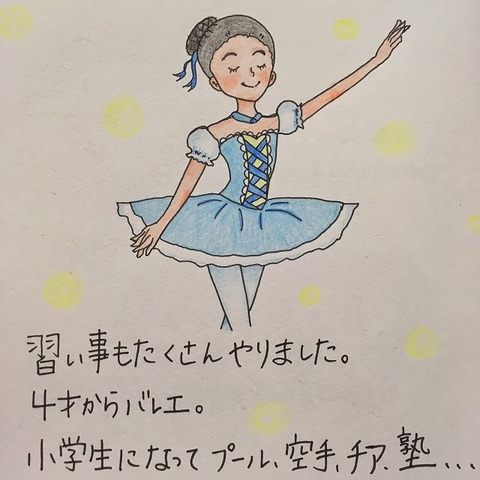 習い事もたくさんやりました。
4才からバレエ。
小学生になって プール、空手、チア、塾...